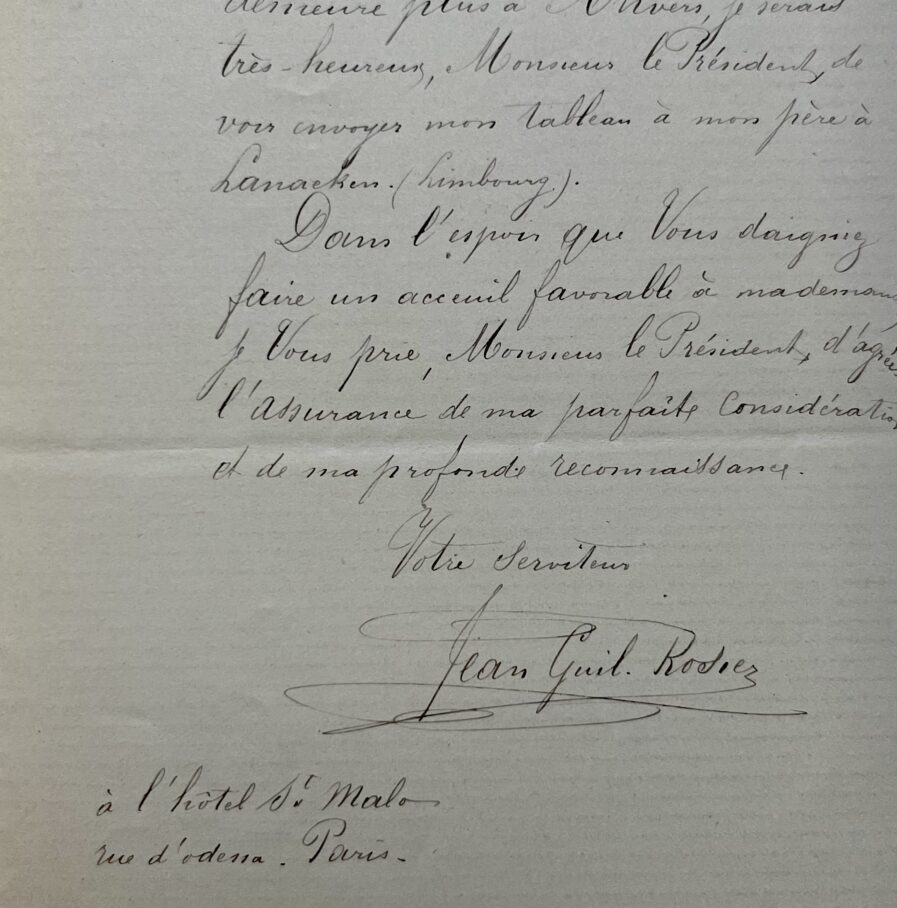 demeure plus à Anvers, je serais
très-heureux, Monsieur le Président, de
voir envoyer mon tableau à mon père à
Lanaeken. (Limbourg.).
Dans l'espoir que Vous daigniez
faire un acceuil favorable à ma deman
je Vous prie, Monsieur le Président, d'agrée
l'assurance de ma parfaite Considération
et de ma profonde reconnaissance.
Votre serviteur
Jean Guil. Rosier
à l'hôtel St. Malo
rue d'odessa. Paris.